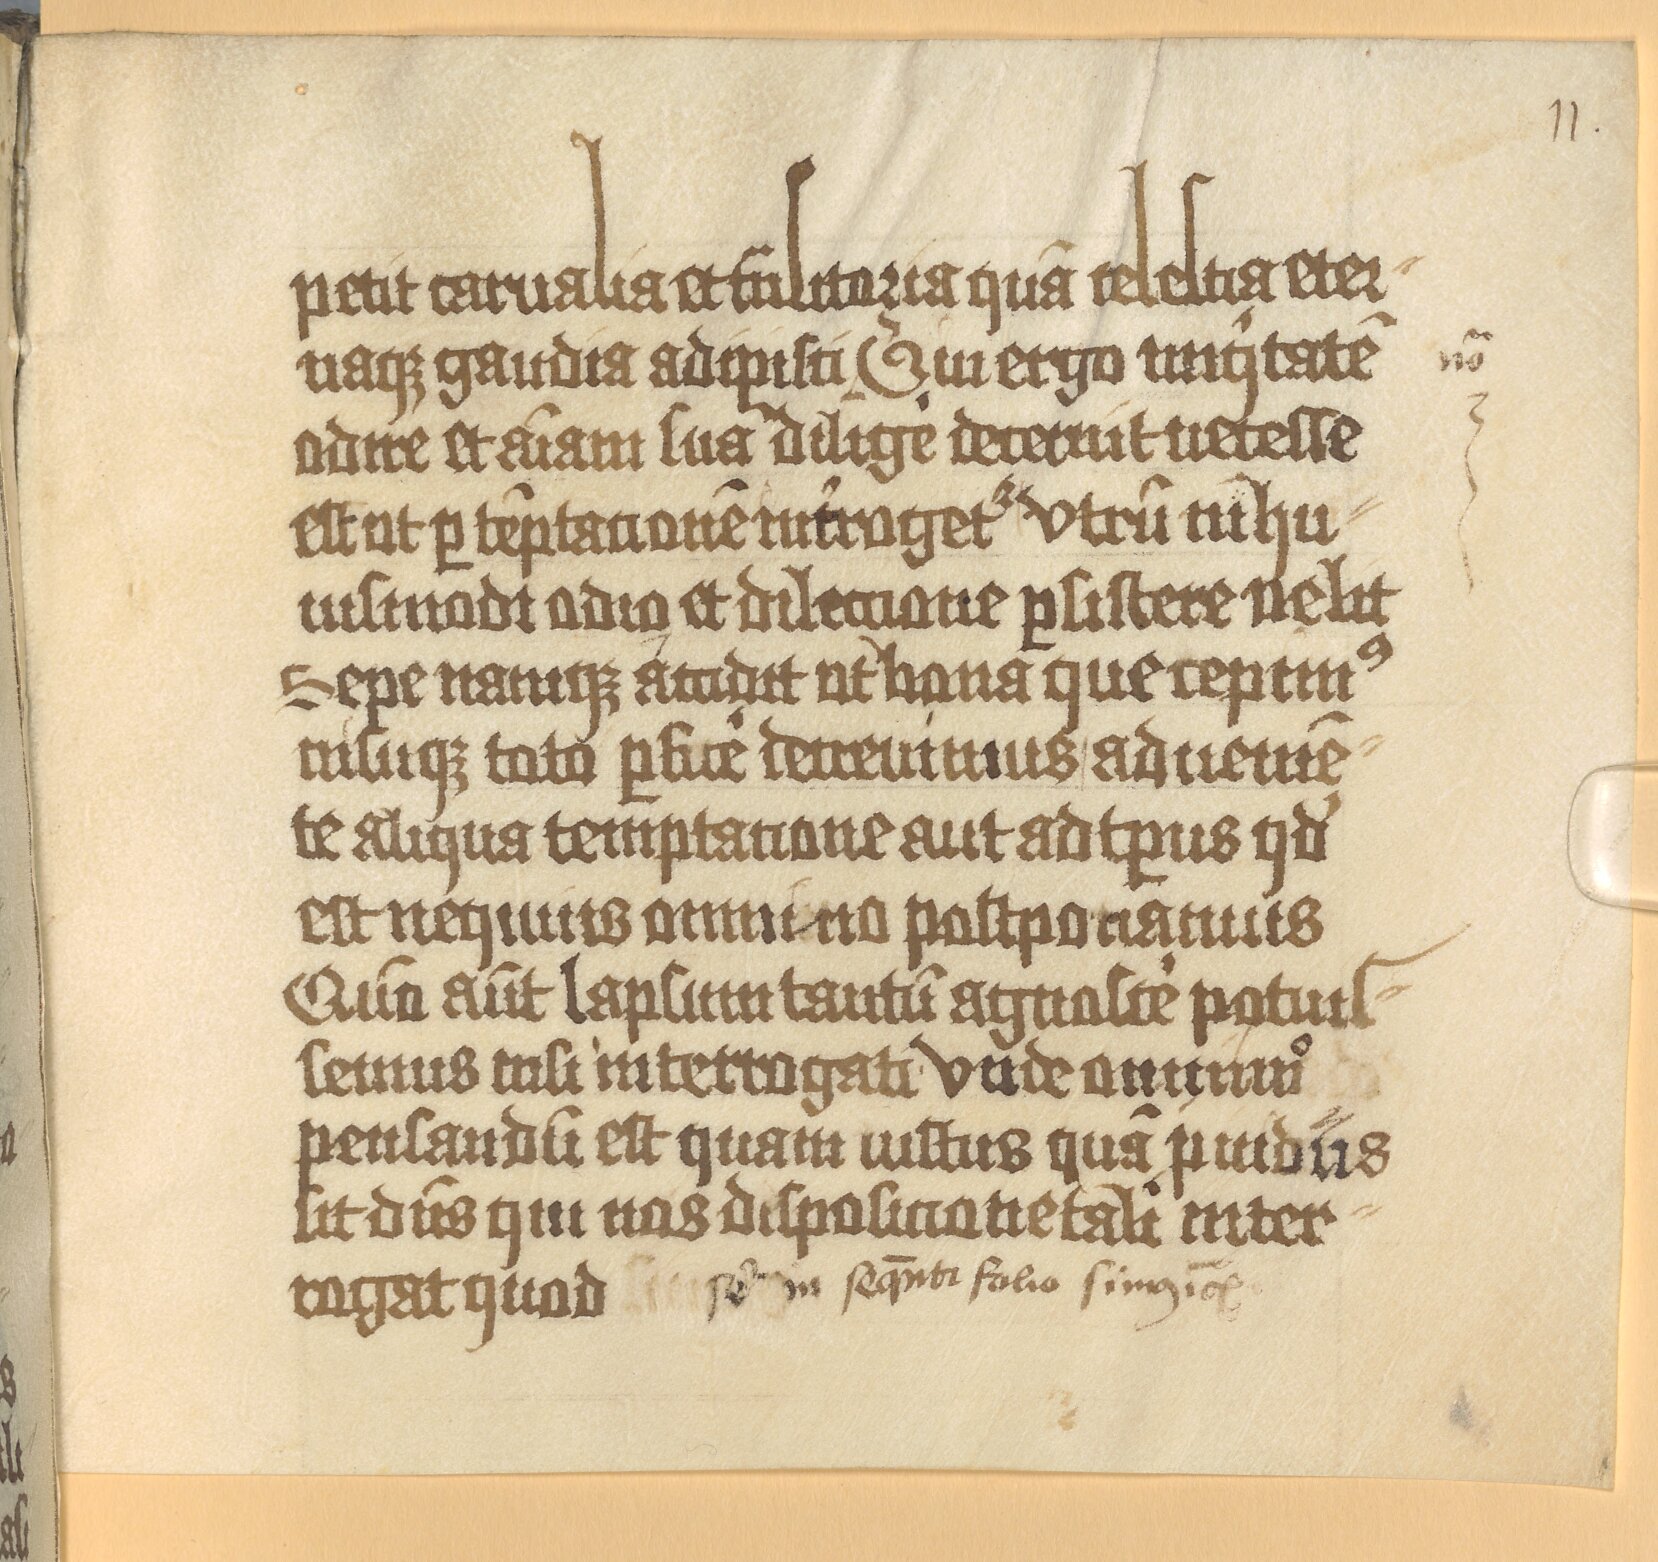 11.
petit carnalia et trāsitoria quā celestia eter-
naqꝫ gaudia adipisci Qui ergo iniq̇tatē
odire et aīam suā diligē decreuit necesse
est ut ꝑ tēptacionē int̄roget᷑ vtrū in hu-
iusmodi odio et dilectione ꝑsistere uelit
Sepe namqꝫ accidit ut bona que cepimꝰ
iusuqꝫ toto ꝑficē decreuimus adueniē-
te aliqua temptacione aut ad tp̄us qd̄
est nequius omnino postponamus
Quō aūt lapsum tantū agnoscē potuis-
semus nisi interrogati vnde omnimͦ
pensandū est quam iustus quā p̄uidus
sit dn̄s qui nos disposicione tali inter-
rogat quod in seq̄nti folio
nō